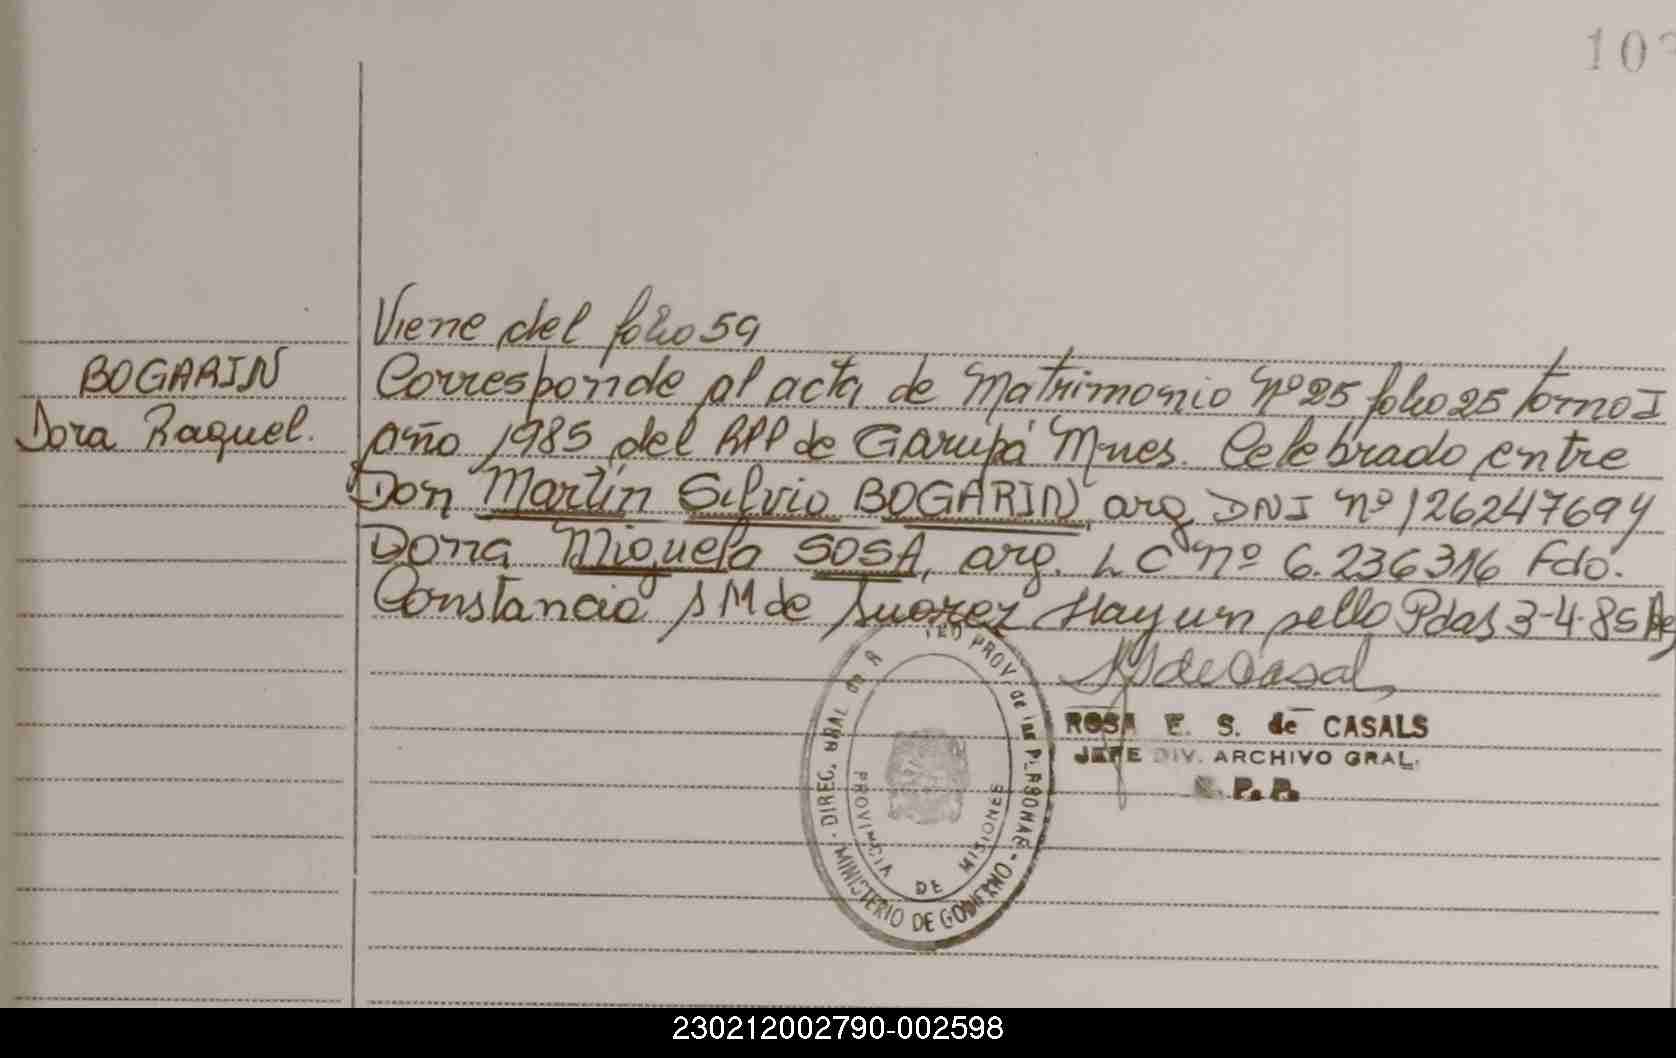 10
Viene del folio 59
BOGARIN
Dora Raquel.
Corresponde al acta de Matrimonio Nº 25 folio 25 tomo I
año 1985 del RPP de Garupá Mnes. Celebrado entre
Don Martín Silvio BOGARIN, arg DNI nº 126247694
Doña Miguela SOSA, arg. L C nº 6.236316 Fdo.
Constancia S M de Suarez Hay un sello Pdas 3-4-85
ROSA E. S. de CASALS
JEFE DIV. ARCHIVO GRAL.
R. P. P.
DIREC. GRAL de PROV de las PERSONAS
PROVINCIA DE MISIONES
MINISTERIO DE GOBIERNO
230212002790-002598